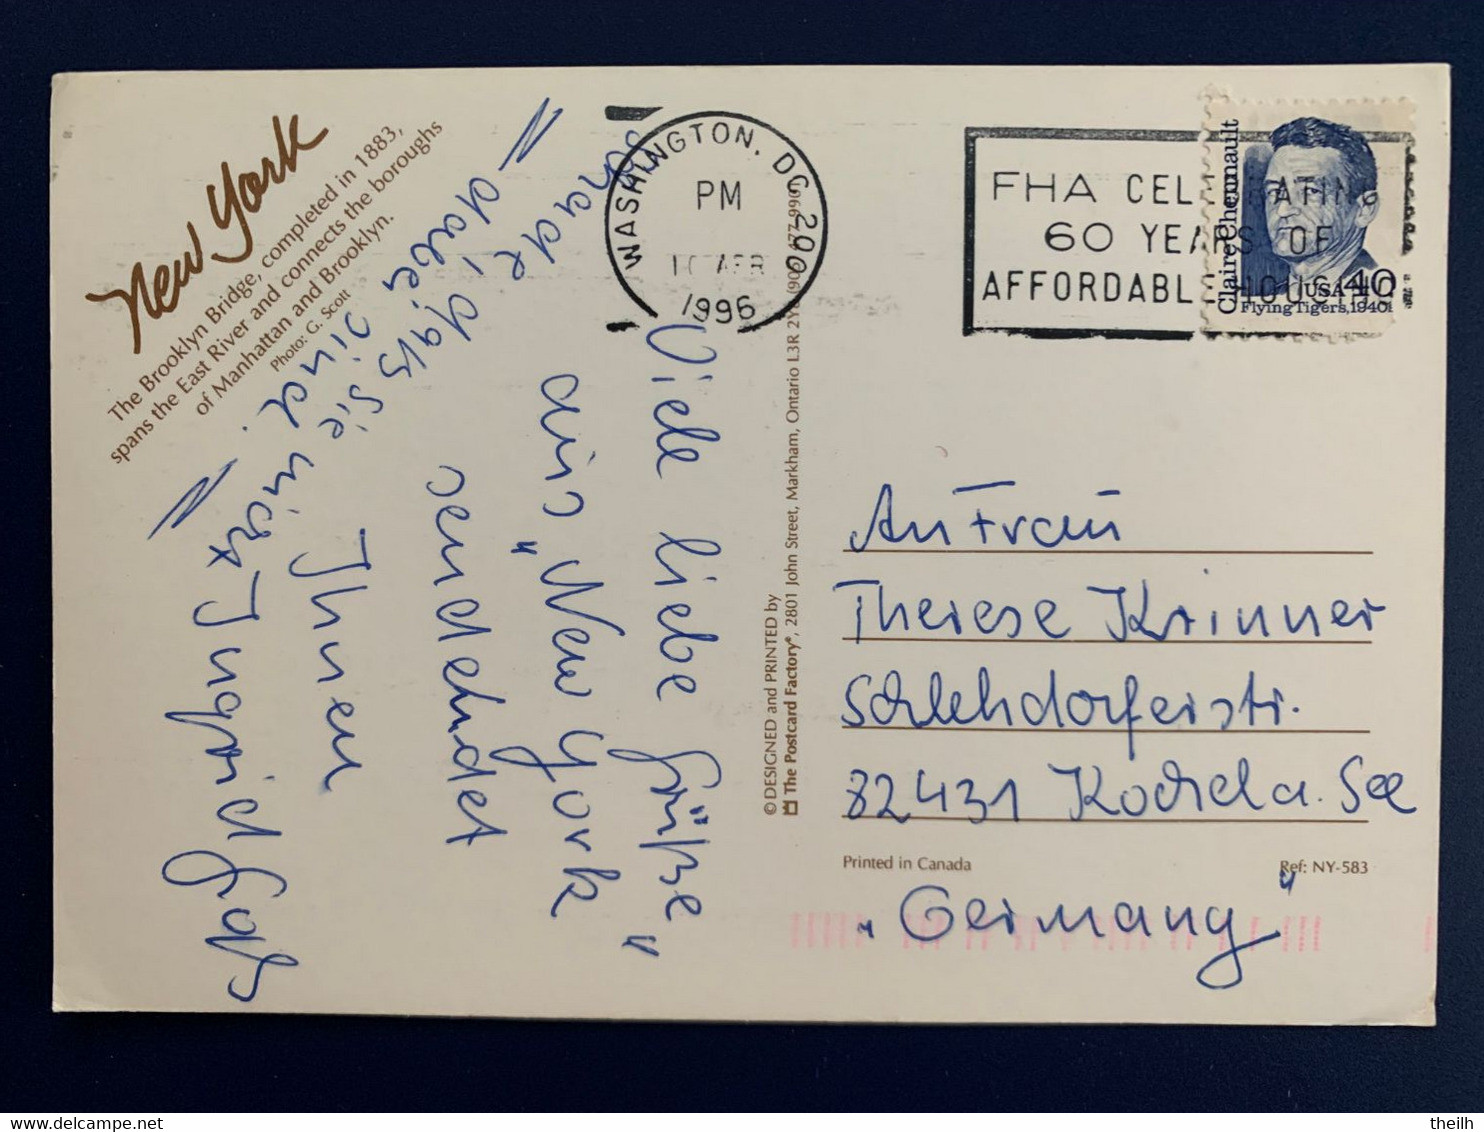 New York
The Brooklyn Bridge, completed in 1883,
spans the East River and connects the boroughs
of Manhattan and Brooklyn.
Photo: G. Scott
Viele liebe Grüße
aus „New York“
sendet
Ihnen
Ingrid
Schade, daß Sie
nicht
dabei sind.
© DESIGNED and PRINTED by
The Postcard Factory®, 2801 John Street, Markham, Ontario L3R 2Y8 (905) 477-9901
WASHINGTON, DC 200
PM
APR
1996
FHA CELEBRATING
60 YEARS OF
AFFORDABLE HOUSING
Claire Chennault
USA 40
Flying Tigers, 1940s
An Frau
Therese Krinner
Schlehdorferstr.
82431 Kochel a. See
„Germany“
Printed in Canada
Ref: NY-583
theilh